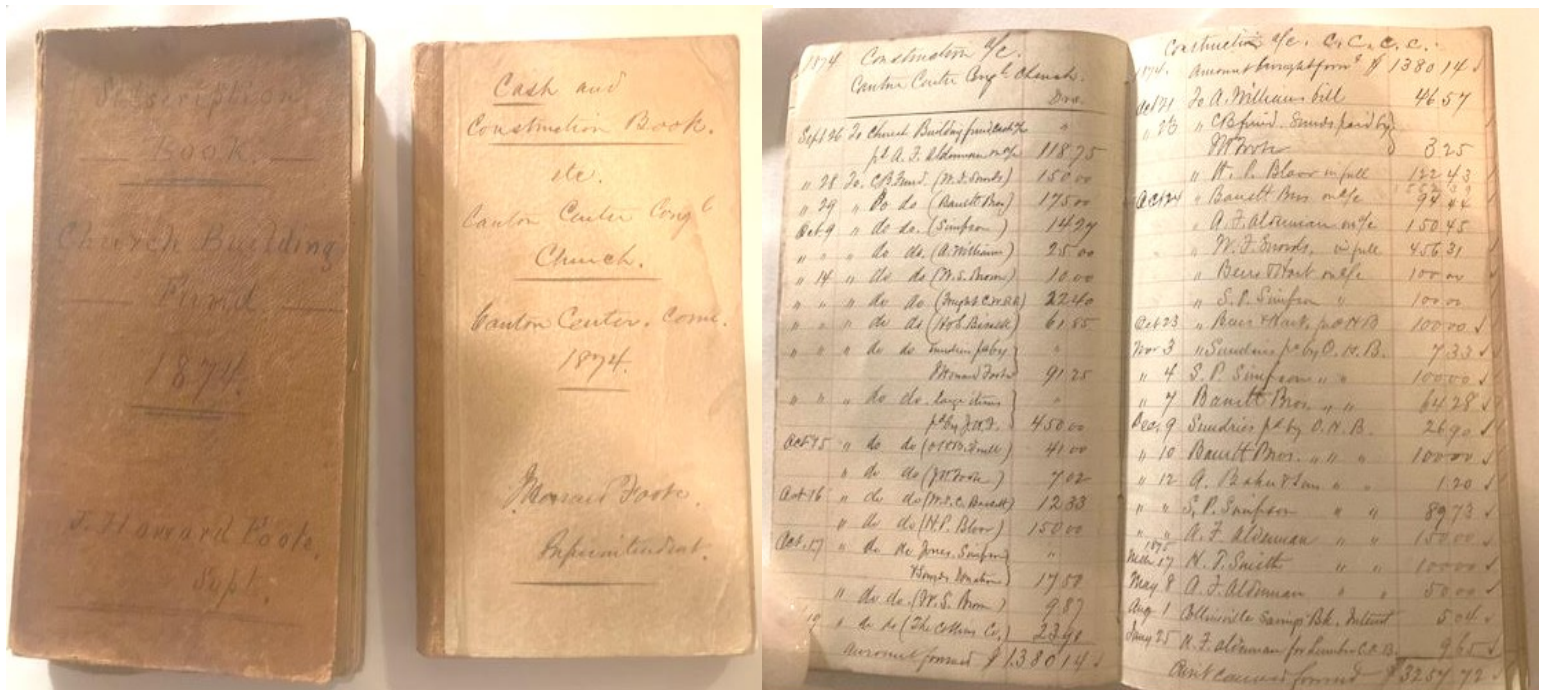 Subscription
Book.
Church Building
Fund
1874.
J. Howard Foote.
Supt.
Cash and
Construction Book.
etc.
Canton Center Congl
Church.
Canton Center. Conn.
1874.
J. Howard Foote.
Superintendent.
1874 Construction a/c.
Canton Center Congl Church.
Drs.
Sept 26 To Church Building fund Cash
pd A. F. Alderman on a/c 118 75
" 28 To C B Fund. (W. F. Smonds) 150 00
" 29 " do do (Barrett Bros) 175 00
Oct 9 " do do. (Simpson) 14 27
" " " do do. (A. Williams) 25 00
" 14 " do do (W. S. Brown) 10 00
" " " do do (Freight C.W.RR) 22 40
" " " do do 61 85
" " " do do Sundries pd by "
J Howard Foote 91 25
" " " do do. large items "
pd by J. H. F. 450 00
Oct 15 " do do 41 00
" do do (JHFoote) 7 02
Oct 16 " do do (W. S. C. Barrett) 12 33
" do do (H. P. Bloor) 150 00
Oct. 17 " do do Jones. Simpson "
Donation 17 50
" do do (W. S. Brown) 9 87
19 " do do (The Collins Co,) 23 98
amount forward $ 1380 14
Construction a/c. C. C. C. C.
1874. Amount brought forwd $ 1380 14
Oct 21 To A. Williams bill 46 57
" CB fund. Sunds paid by
JHFoote 3 25
" H. P. Bloor in full 122 43
Oct 24 " Barrett Bros on a/c 94 44
" A. F. Alderman on a/c 150 45
" W. F. Smonds, in full 456 31
" on a/c 100 00
" S. P. Simpson " 100 00
Oct 23 100 00
Nov 3 " Sundries pd by O. H. B. 7 33
" 4 S. P. Simpson " " 100 00
" 7 Barrett Bros. " " 64 28
Dec. 9 Sundries pd by O. H. B. 26 90
" 10 Barrett Bros. " " 100 00
" 12 A. Baker & Son " " 1 20
" " S. P. Simpson " " 89 73
" " A. F. Alderman " " 150 00
1875
17 N. T. Smith " " 100 00
May 8 A. F. Alderman " " 50 00
Aug 1 Collinsville Savings Bk. Interest 5 04
25 A. F. Alderman for Lumber 9 65
Amt carried forward $3257 72